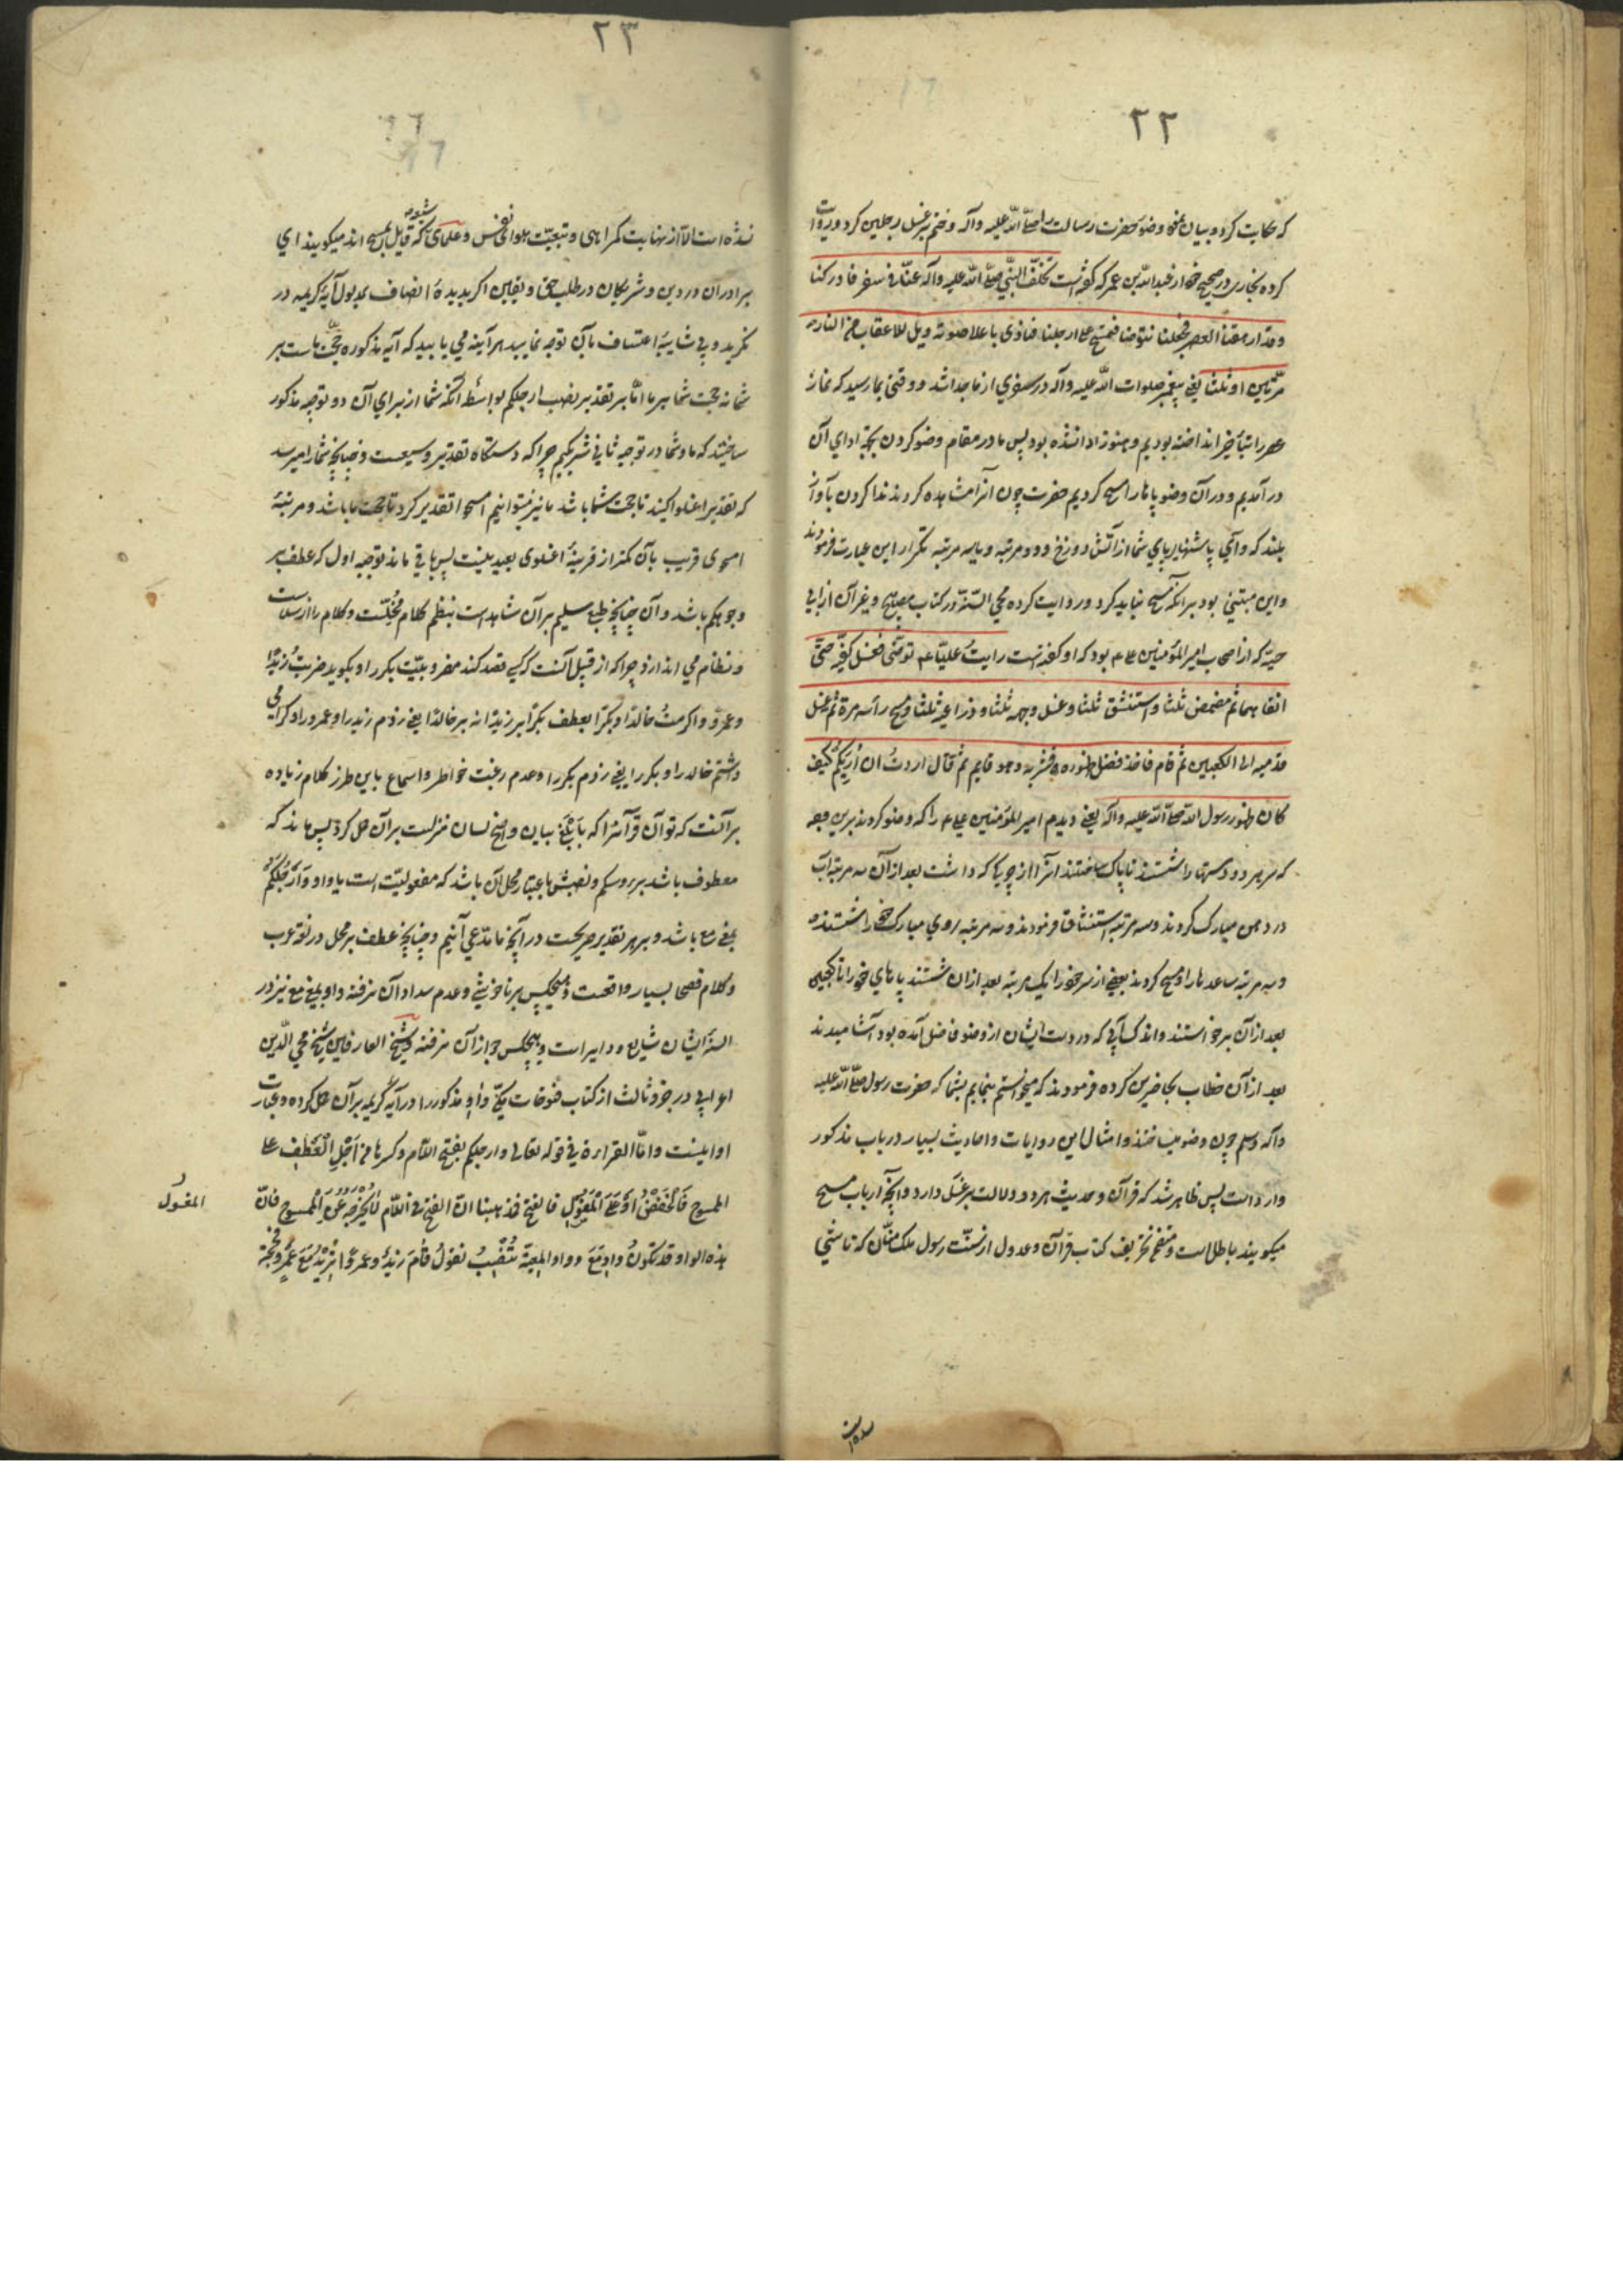 ٢٢
که حکایت کرد و بیان نحو وضوء حضرت رسالت را صلّی اللّه علیه وآله وختم بر غسل رجلین کرد و روایت
کرده بخاری در صحیح خود از عبد اللّه بن عمر که گفته است تخلّف النّبی صلّی اللّه علیه وآله عنّا فی سفر فادرکنا
وقد ارهقنا العصر فجعلنا نتوضا فنمسح علی ارجلنا فنادی باعلا صوته ویل للاعقاب من النار
مرّتین او ثلثا یعنی پیغمبر صلوات اللّه علیه وآله در سفری از ما جدا شد و وقتی بما رسید که نماز
عصر را بتأخیر انداخته بودیم و هنوز ادا نشده بود پس ما در مقام وضو کردن بجهة ادای آن
در آمدیم و در آن وضو پاها را مسح کردیم حضرت چون آنرا مشاهده کردند ندا کردن بآواز
بلند که وای پاشنهای پای شما از آتش دوزخ و دو مرتبه و یا سه مرتبه تکرار این عبارت فرمودند
و این مبتنی بود بر آنکه مسح نباید کرد و روایت کرده محی السّنّة در کتاب مصابیح و غیر آن از ابی
حیّه که از اصحاب امیر المؤمنین ع م بود که او گفته است رایتُ علیّا ع م توضّی فغسل کفّیه حتّی
انقاهما ثم مضمض ثلثا واستنشق ثلثا وغسل وجهه ثلثا وذراعیه ثلثا ومسح رأسه مرة ثم غسل
قدمیه الی الکعبین ثم قام فاخذ فضل طهوره فشربه وهو قایم ثم قال اردتُ ان اُریکُم کیف
کان طهور رسول اللّه صلّی اللّه علیه وآله یعنی دیدم امیر المؤمنین علی ع م را که وضو کردند برین وجه
که سر هر دو دستها را شستند تا پاک ساختند آنرا از چرکی که داشت بعد از آن سه مرتبه آب
در دهن مبارک کردند و سه مرتبه استنشاق فرمودند و سه مرتبه روی مبارک خود را شستند
و سه مرتبه ساعدها را و مسح کردند بعضی از سر خود را یک مرتبه بعد از ان شستند پاهای خود را تا کعبین
بعد از آن برخواستند واندک آبی که در دست ایشان از وضو فاضل آمده بود آشامیدند
بعد از آن خطاب بحاضرین کرده فرمودند که میخواستم بنمایم بشما که حضرت رسول صلّی اللّه علیه
وآله وسلم چون وضو میساختند و امثال این روایات و احادیث بسیار در باب مذکور
وارد است پس ظاهر شد که قرآن و حدیث هر دو دلالت بر غسل دارد و آنچه ارباب مسح
میکویند باطل است و متضمّن تحریف کتاب قرآن و عدول از سنّت رسول ملک منّان که ناشی
٢٣
نشده است الّا از نهایت کمراهی و تبعیّت هوای نفس و علمای شیعه که قایل بمسح اند میکویند ای
برادران در دین و شریکان در طلب حق و یقین اکر بدیدۀ انصاف بمدلول آیۀ کریمه در
نکرید و بی شایبۀ اعتساف بآن توجه نمایید هر آینه می یابید که آیه مذکوره حجّت ماست بر
شما نه حجت شما بر ما امّا بر تقدیر نصب ارجلکم بواسطۀ آنکه شما از برای آن دو توجیه مذکور
ساختید که ما و شما در توجیه ثانی شریکیم چرا که دستکاه تقدیر وسیعست و چنانچه شما را میرسد
که تقدیر اغسلوا کنید تا حجت شما باشد ما نیز میتوانیم امسحوا تقدیر کرد تا حجت ما باشد و مرتبۀ
امسحوی قریب بآن کمتر از قرینۀ اغسلوی بعید نیست پس باقی ماند توجیه اول که عطف بر
وجوهکم باشد و آن چنانچه طبع سلیم بر آن شاهد است بنظم کلام مُخلّست و کلام را از سلاست
و نظام می اندازد چرا که از قبیل آنست که کسی قصد کند مضروبیّت بکر را و بکوید ضربتُ زیدًا
وعمروً واکرمتُ خالدًا وبکرًا بعطف بکرًا بر زیدًا نه بر خالدًا یعنی زدم زید را و عمرو را و کرامی
داشتم خالد را و بکر را یعنی زدم بکر را و عدم رغبت خواطر و اسماع باین طرز کلام زیاده
بر آنست که توان قرآنرا که بَاَبْلَغ بیان و افصح لسان منزلست بر آن حمل کرد پس ماند که
معطوف باشد بر رؤسکم و نصبش باعتبار محل آن باشد که مفعولیّت است یا واو وَاَرْجُلَکُمْ
بمعنی مع باشد و بر هر تقدیر صریحست در آنچه ما مدّعی آنیم و چنانچه عطف بر محل در لغة عرب
و کلام فصحا بسیار واقعست و هیچکس بر ناخوشی و عدم سداد آن نرفته واو بمعنی مع نیز در
السنۀ ایشان شایع و دایر است و هیچکس بجز از آن نرفته و شیخ العارفین شیخ محی الدّین
اعرابی در جزو ثالث از کتاب فتوحات مکّی واو مذکور را در آیه کریمه بر آن حمل کرده و عبارت
او اینست وامّا القراءة فی قوله تعالی وارجلکم بفتح اللّام وکسرها من اَجْلِ الْعَطْفِ علی
الممسوح فَالْخَفْضُ اَوْ عَلَی الْمَغْسُولِ فالفتح فذهبنا انّ الفتح فی اللّام لَایُخْرِجُهُ عَنِ الْمَمسوحِ فانّ
هذه الواو قد تکونُ واو مَعَ وواو المعیّة تَنْصِبُ تقولُ قام زیدٌ وعمرًوا ای زَیْدٌ مَعَ عَمْرٍو فحجّة
المغسول